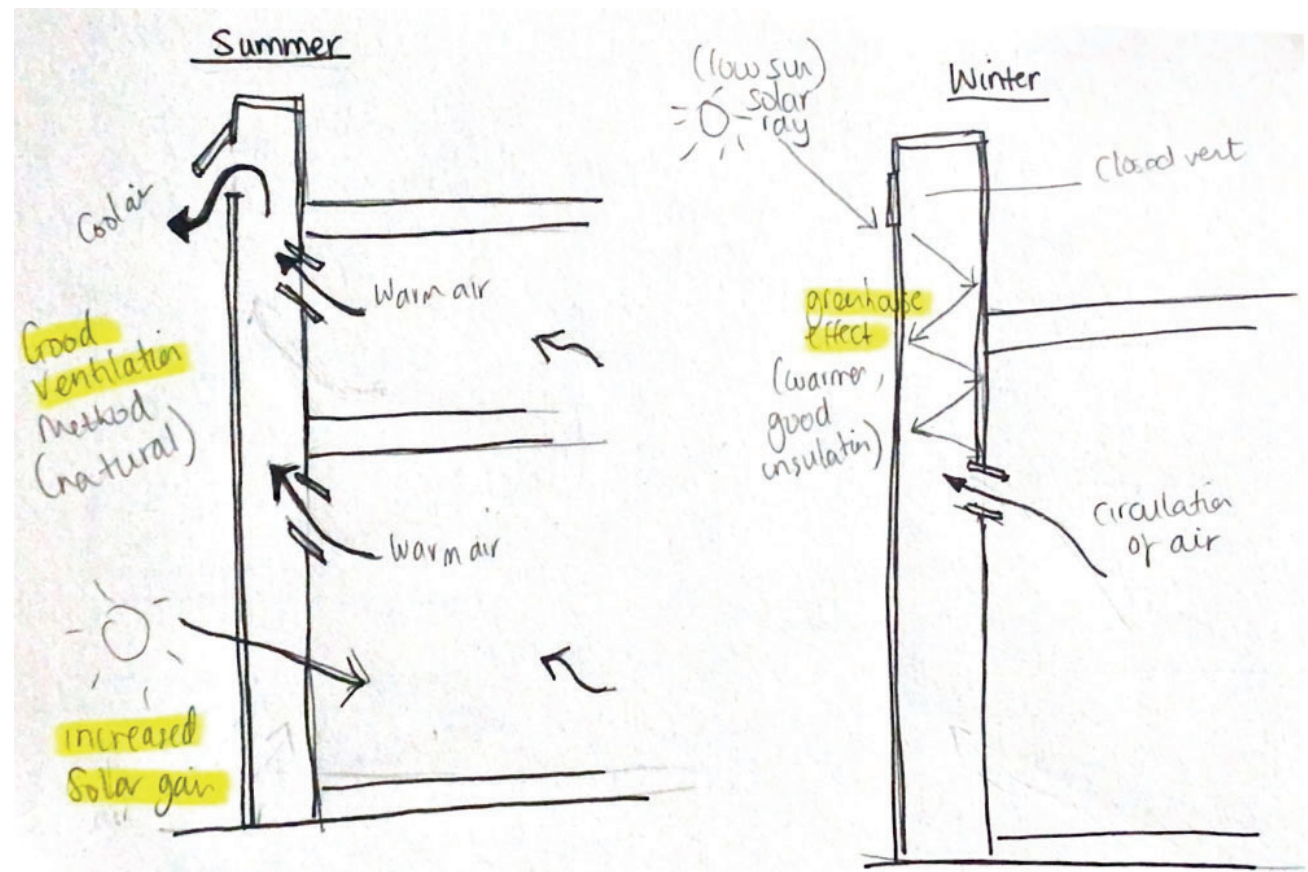 Summer
Cool air
Warm air
Good
Ventilation
Method
(natural)
Warm air
increased
Solar gain
(low sun)
solar
ray
Winter
Closed vent
greenhouse
effect
(warmer,
good
insulatin)
Circulation
of air